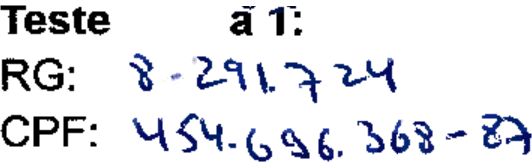 Teste a 1:
RG: 8-291.724
CPF: 454.696.368-87